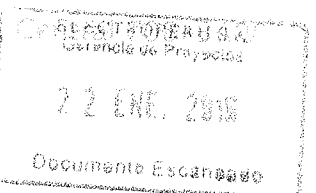 Gerencia de Proyectos
22 ENE. 2016
Documento Escaneado